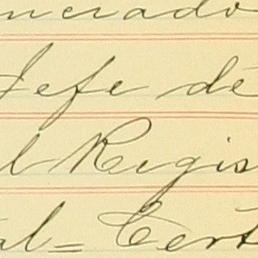 nerado
Jefe de
l Regis
al= Cert